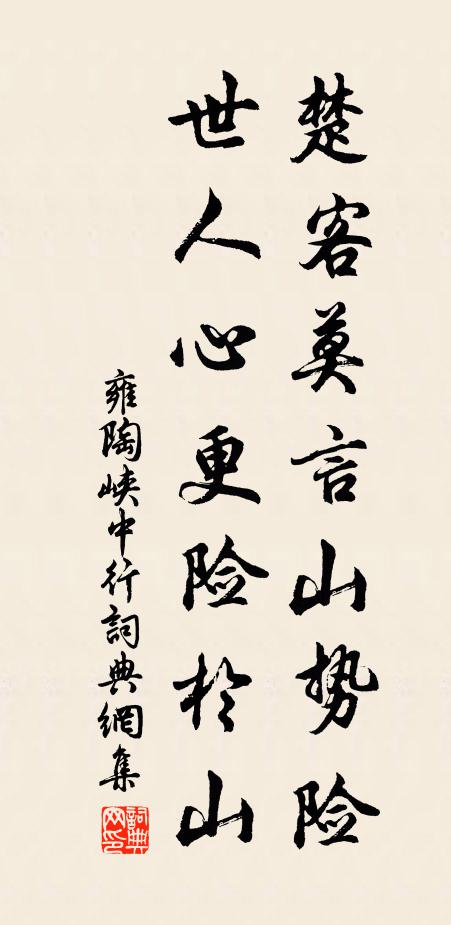 楚客莫言山势险
世人心更险於山
雍陶峡中行詞典網集
詞典網印